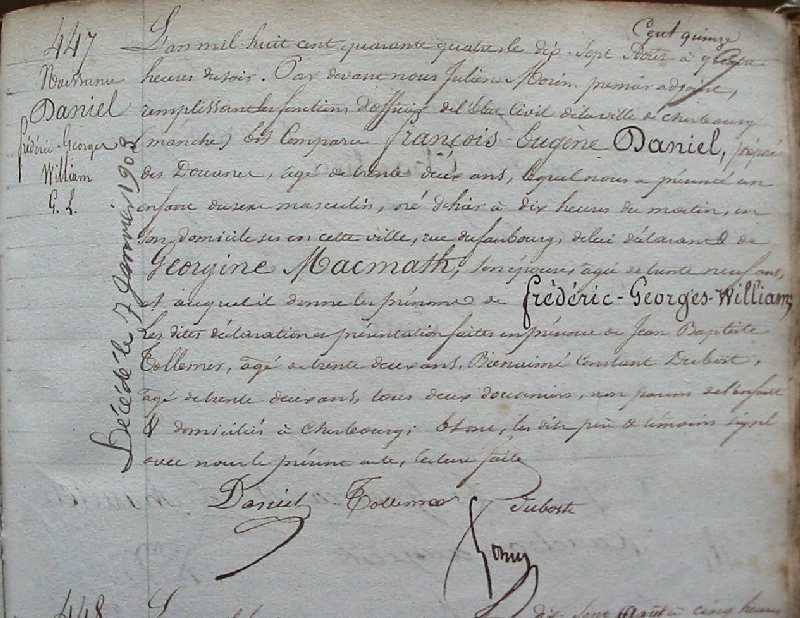 Cent quinze
447
Naissance
Daniel
frédéric-Georges
William
G. L.
Décédé le 7 Janvier 1908
L'an mil huit cent quarante quatre, le dix-sept Août à quatre
heures du soir. Par devant nous Julien Morin, premier adjoint,
remplissant les fonctions d'officier de l'Etat Civil de la ville de Cherbourg
(manche) Est Comparu françois Eugène Daniel, préposé
des Douanes, âgé de trente deux ans, lequel nous a présenté un
enfant du sexe masculin, né d'hier à dix heures du matin, en
son domicile sis en cette ville, rue du faubourg, de lui déclarant & de
Georgine Macmath, son épouse, agée de trente neuf ans,
et auquel il donne les prénoms de frédéric-Georges-William;
Les dites déclaration et présentation faites en présence de Jean Baptiste
Tollemer, âgé de trente deux ans, Bienaimé Constant Dubost,
agé de trente deux ans, tous deux douaniers, non parens de l'enfant
& domiciliés à Cherbourg; Et ont, les dits père & témoins signé
avec nous le présent acte, lecture faite
Daniel Tollemer Dubost
Morin
448 L'an
dix-sept Août à cinq heures